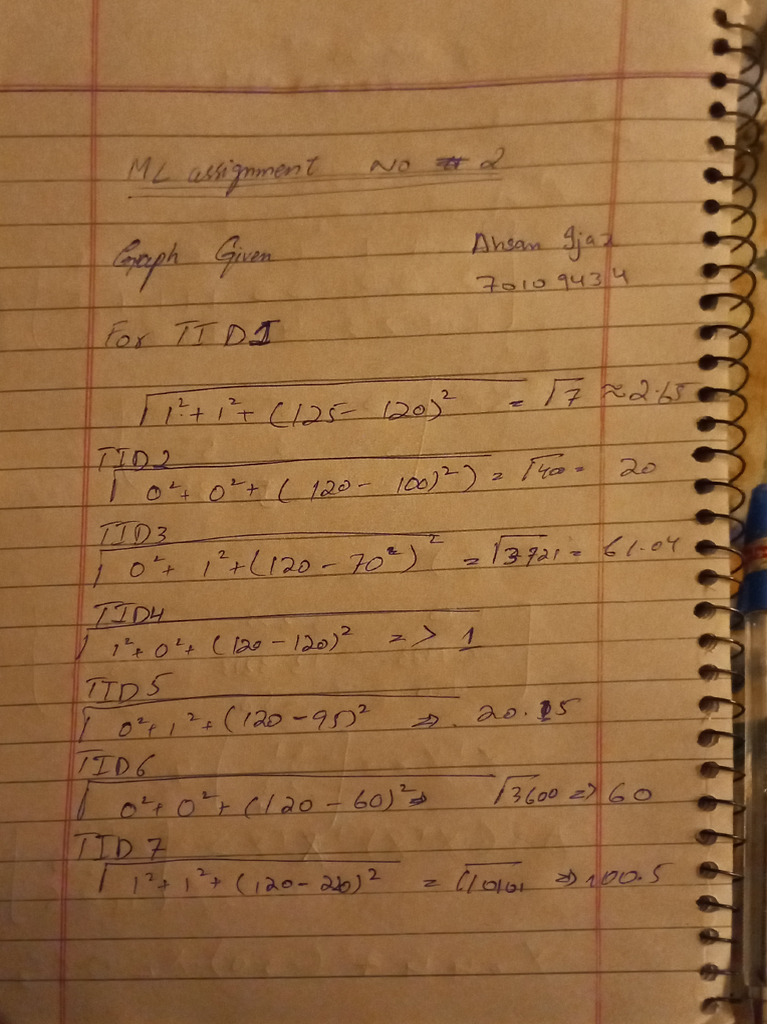 ML assignment No # 2
Graph Given Ahsan Ijaz
70109434
For TID1
√1²+1²+(125-120)² = √7 ≈2.65
TID2
√0²+0²+(120-100)²) = √400= 20
TID3
√0²+1²+(120-70²)² = √3721 = 61.04
TID4
√1²+0²+(120-120)² => 1
TID5
√0²+1²+(120-95)² => 20.25
TID6
√0²+0²+(120-60)²=> √3600 => 60
TID7
√1²+1²+(120-220)² = √10101 => 100.5